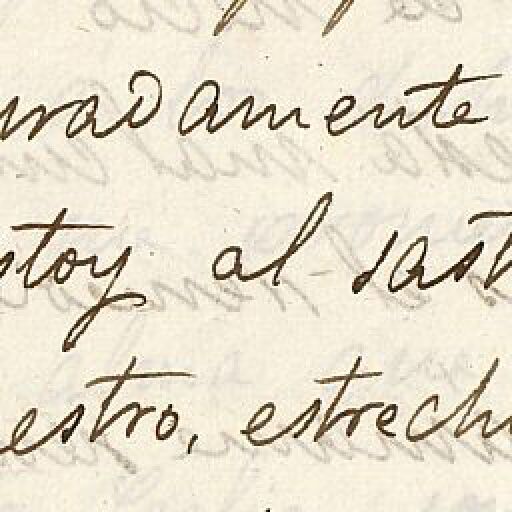 uradamente
stoy al sast
estro, estrech